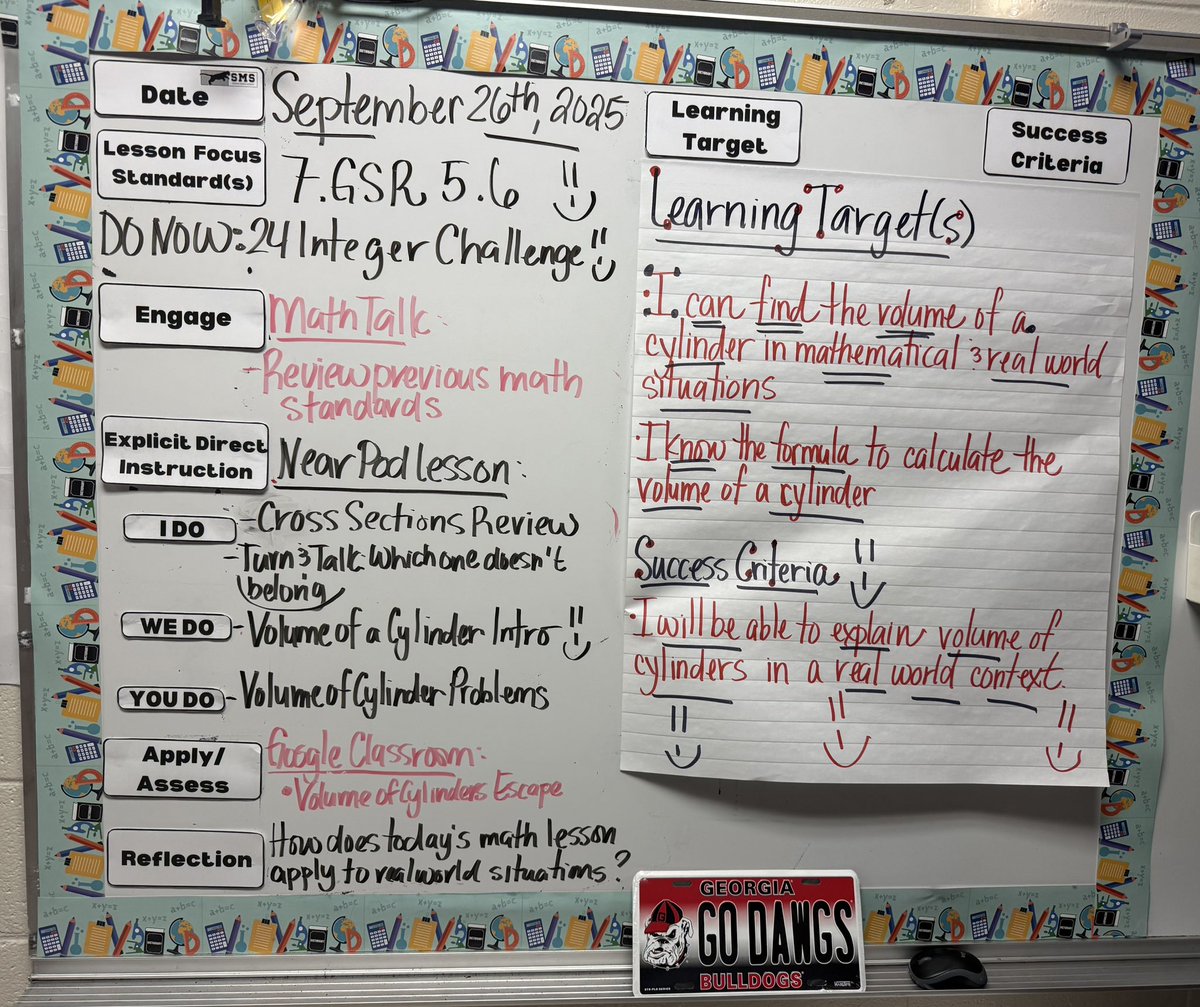 SMS
Date
September 26th, 2025
Lesson Focus
Standard(s)
7.GSR 5.6
DO NOW: 24 Integer Challenge
Engage
Math Talk:
-Review previous math
standards
Explicit Direct
Instruction
Near Pod lesson:
I DO
-Cross Sections Review
-Turn & Talk Which one doesn't
belong
WE DO
-Volume of a Cylinder Intro
YOU DO
-Volume of Cylinder Problems
Apply/
Assess
Google Classroom:
•Volume of Cylinders Escape
Reflection
How does today's math lesson
apply to real world situations?
Learning
Target
Success
Criteria
Learning Target(s)
•I can find the volume of a
cylinder in mathematical & real world
situations
•I know the formula to calculate the
volume of a cylinder
Success Criteria
•I will be able to explain volume of
cylinders in a real world context.
GEORGIA
GO DAWGS
BULLDOGS